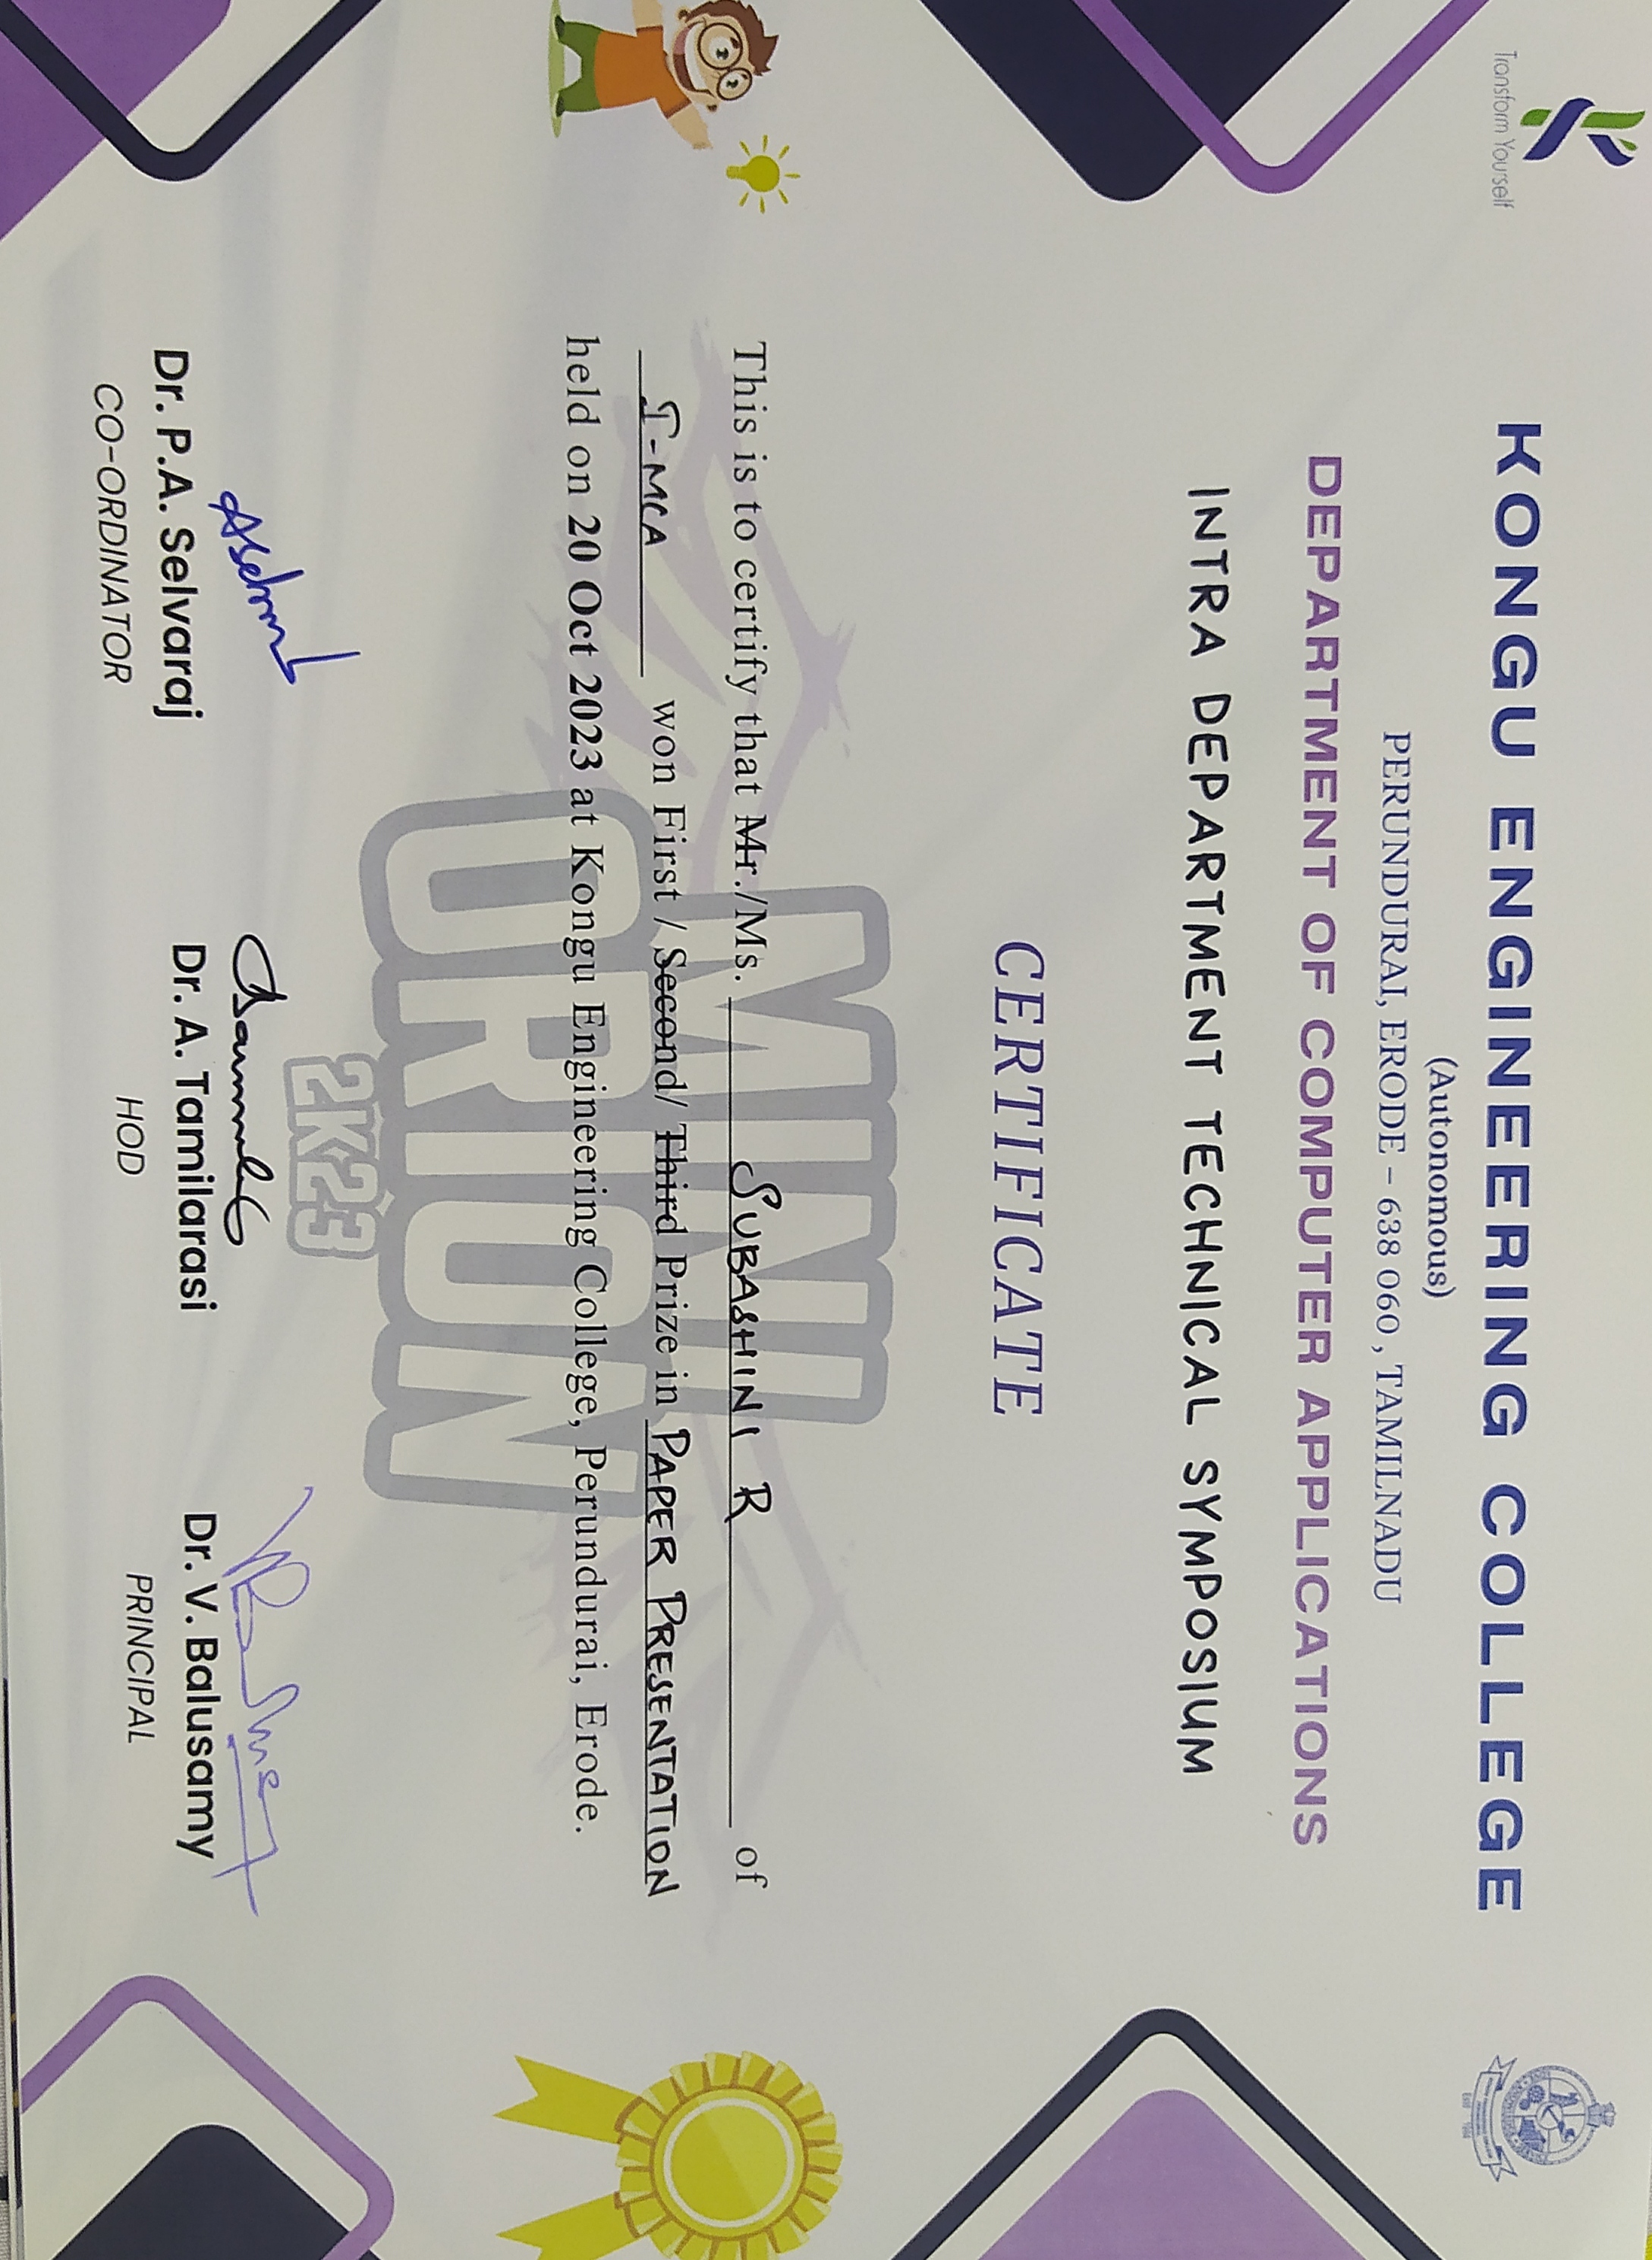 Transform Yourself
KONGU ENGINEERING COLLEGE
(Autonomous)
PERUNDURAI, ERODE – 638 060 , TAMILNADU
DEPARTMENT OF COMPUTER APPLICATIONS
INTRA DEPARTMENT TECHNICAL SYMPOSIUM
CERTIFICATE
MINI
ORION
2K23
This is to certify that Mr./Ms. SUBASHINI R of
I-MCA won First / Second/ Third Prize in PAPER PRESENTATION
held on 20 Oct 2023 at Kongu Engineering College, Perundurai, Erode.
Dr. P.A. Selvaraj
CO-ORDINATOR
Dr. A. Tamilarasi
HOD
Dr. V. Balusamy
PRINCIPAL